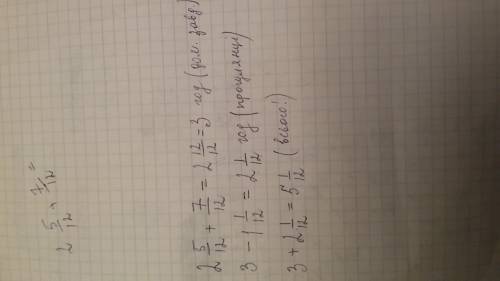 2 5/12 + 7/12 =
2 5/12 + 7/12 = 2 12/12 = 3 год (дом. завд.)
3 - 1 1/12 = 2 1/12 год (прогулянці)
3 + 2 1/12 = 5 1/12 (всього!)